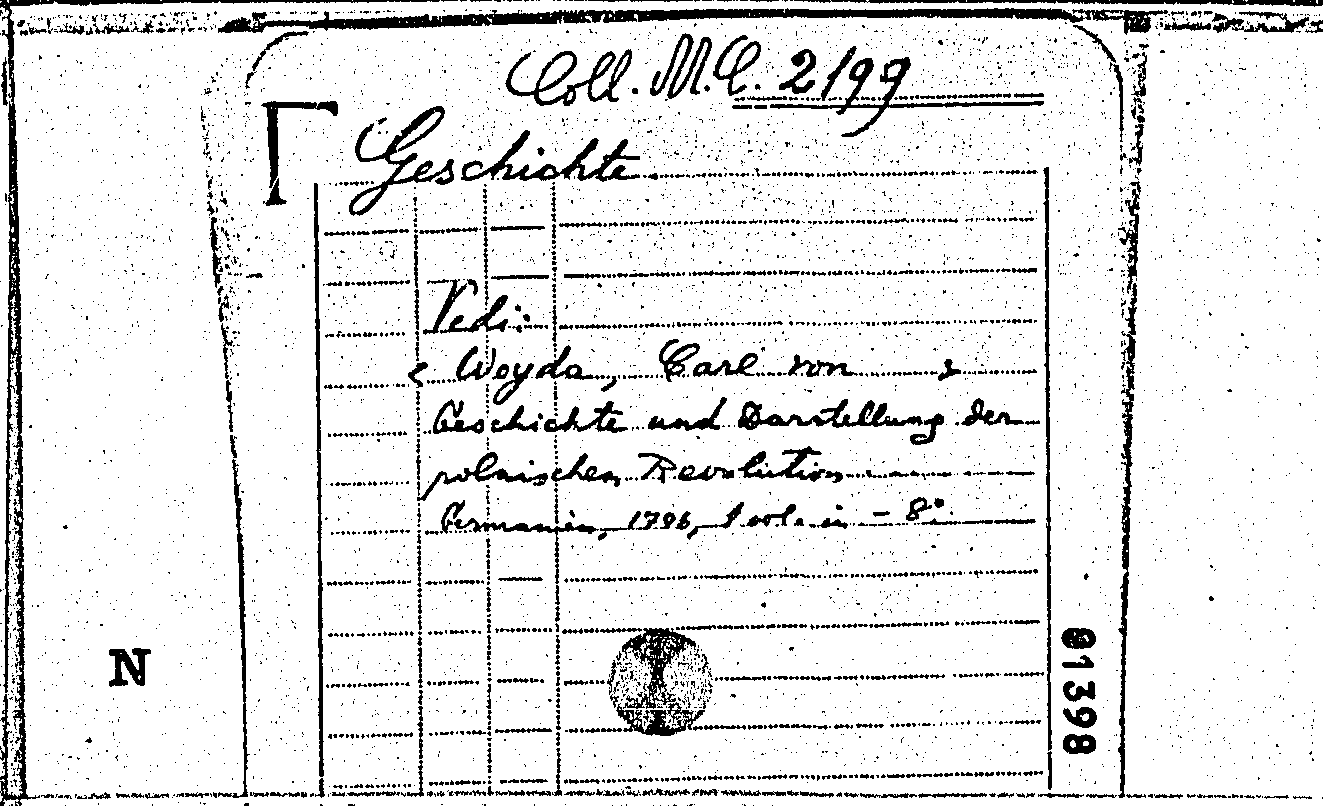 Coll. M.C. 2/99
Geschichte.
Vedi:
< Woyda, Carl von >
Geschichte und Darstellung der
polnischen Revolution
Germanien, 1796, 1 vol. in - 8°.
N
01398